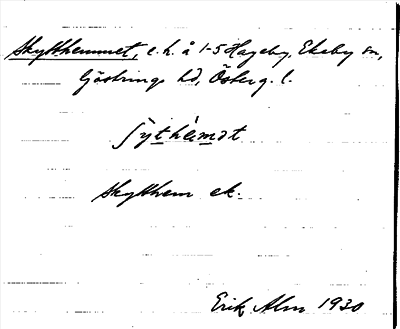 Skytthemmet, l.h. å 1-5 Hageby, Ekeby sn,
Göstrings hd, Österg. l.
ʃytheͅmət
Skytthem ek.
Erik Alm 1930